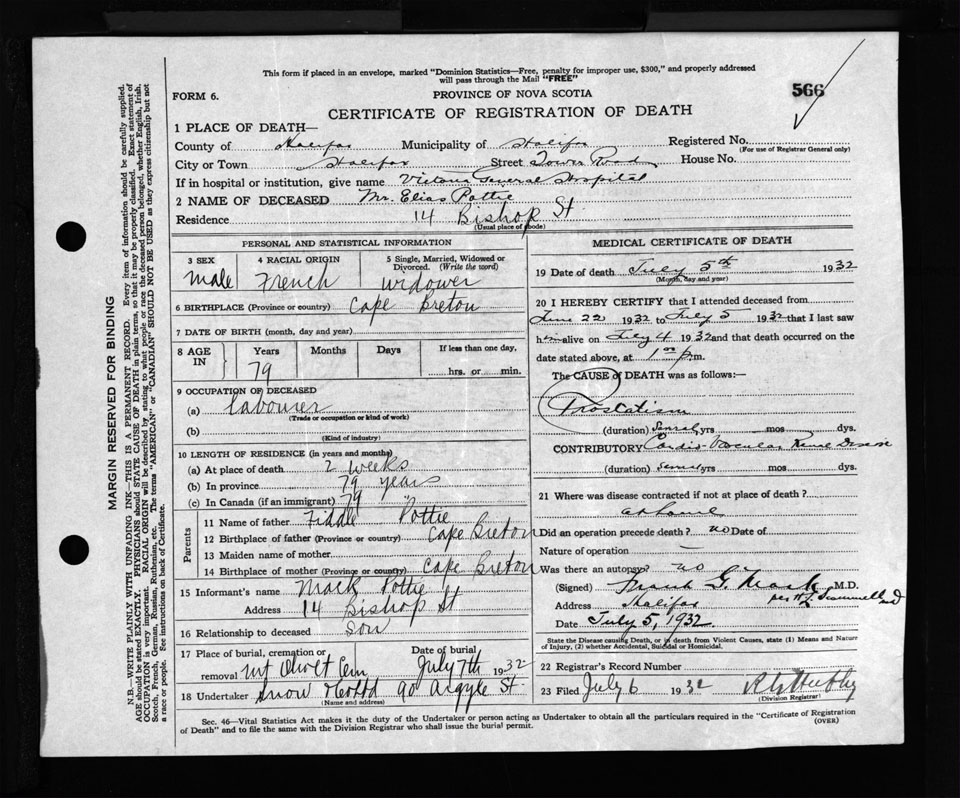 This form if placed in an envelope, marked "Dominion Statistics—Free, penalty for improper use, $300," and properly addressed
will pass through the Mail "FREE"
566
FORM 6.
PROVINCE OF NOVA SCOTIA
CERTIFICATE OF REGISTRATION OF DEATH
1 PLACE OF DEATH—
County of Halifax Municipality of Halifax Registered No.
(For use of Registrar General only)
City or Town Halifax Street Tower Road House No.
If in hospital or institution, give name Victoria General Hospital
2 NAME OF DECEASED Mr. Elias Pottie
Residence 14 Bishop St
(Usual place of abode)
PERSONAL AND STATISTICAL INFORMATION
3 SEX 4 RACIAL ORIGIN 5 Single, Married, Widowed or
Divorced. (Write the word)
Male French widower
6 BIRTHPLACE (Province or country) Cape Breton
7 DATE OF BIRTH (month, day and year)
8 AGE IN Years Months Days If less than one day,
79 hrs. or min.
9 OCCUPATION OF DECEASED
(a) Labourer
(Trade or occupation or kind of work)
(b)
(Kind of industry)
10 LENGTH OF RESIDENCE (in years and months)
(a) At place of death 2 weeks
(b) In province 79 years
(c) In Canada (if an immigrant) 79 "
Parents
11 Name of father Fiddle Pottie
12 Birthplace of father (Province or country) Cape Breton
13 Maiden name of mother
14 Birthplace of mother (Province or country) Cape Breton
15 Informant's name Mack Pottie
Address 14 Bishop St
16 Relationship to deceased Son
17 Place of burial, cremation or removal Date of burial
Mt Olivet Cem July 7th 1932
18 Undertaker Snow & Co Ltd 90 Argyle St
(Name and address)
MEDICAL CERTIFICATE OF DEATH
19 Date of death July 5th 1932
(Month, day and year)
20 I HEREBY CERTIFY that I attended deceased from
June 22 1932 to July 5 1932 that I last saw
him alive on July 4 1932 and that death occurred on the
date stated above, at 1 p.m.
The CAUSE of DEATH was as follows:—
Prostatism
(duration) several yrs mos dys.
CONTRIBUTORY Cardio Vascular Renal Disease
(duration) several yrs mos dys.
21 Where was disease contracted if not at place of death?
at home
Did an operation precede death? no Date of
Nature of operation —
Was there an autopsy? no
(Signed) Frank G. Mack M.D.
Address Halifax
Date July 5, 1932
State the Disease causing Death, or in death from Violent Causes, state (1) Means and Nature
of Injury, (2) whether Accidental, Suicidal or Homicidal.
22 Registrar's Record Number
23 Filed July 6 1932
(Division Registrar)
Sec. 46—Vital Statistics Act makes it the duty of the Undertaker or person acting as Undertaker to obtain all the particulars required in the "Certificate of Registration
of Death" and to file the same with the Division Registrar who shall issue the burial permit.
(OVER)
MARGIN RESERVED FOR BINDING
N.B.—WRITE PLAINLY WITH UNFADING INK—THIS IS A PERMANENT RECORD. Every item of information should be carefully supplied.
AGE should be stated EXACTLY. PHYSICIANS should STATE CAUSE OF DEATH in plain terms, so that it may be properly classified. Exact statement of
OCCUPATION is very important. RACIAL ORIGIN will be described by stating to what people or race the deceased person belonged, whether English, Irish,
Scotch, French, German, Russian, Ruthenian, etc. The terms "AMERICAN" or "CANADIAN" SHOULD NOT BE USED as they express citizenship but not
a race or people. See instructions on back of Certificate.